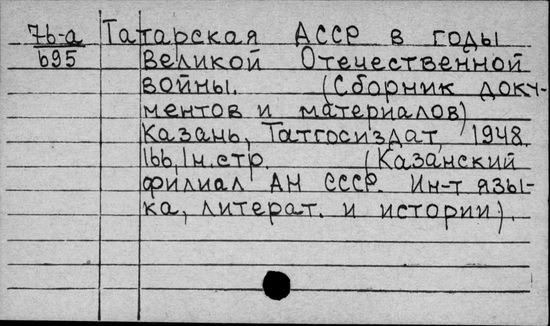 76-а Татарская АССР в годы
695 Великой Отечественной
войны. (Сборник доку-
ментов и материалов)
Казань, Татгосиздат, 1948.
166, 1н.стр. (Казанский
филиал АН СССР. Ин-т язы-
ка, литерат. и истории).